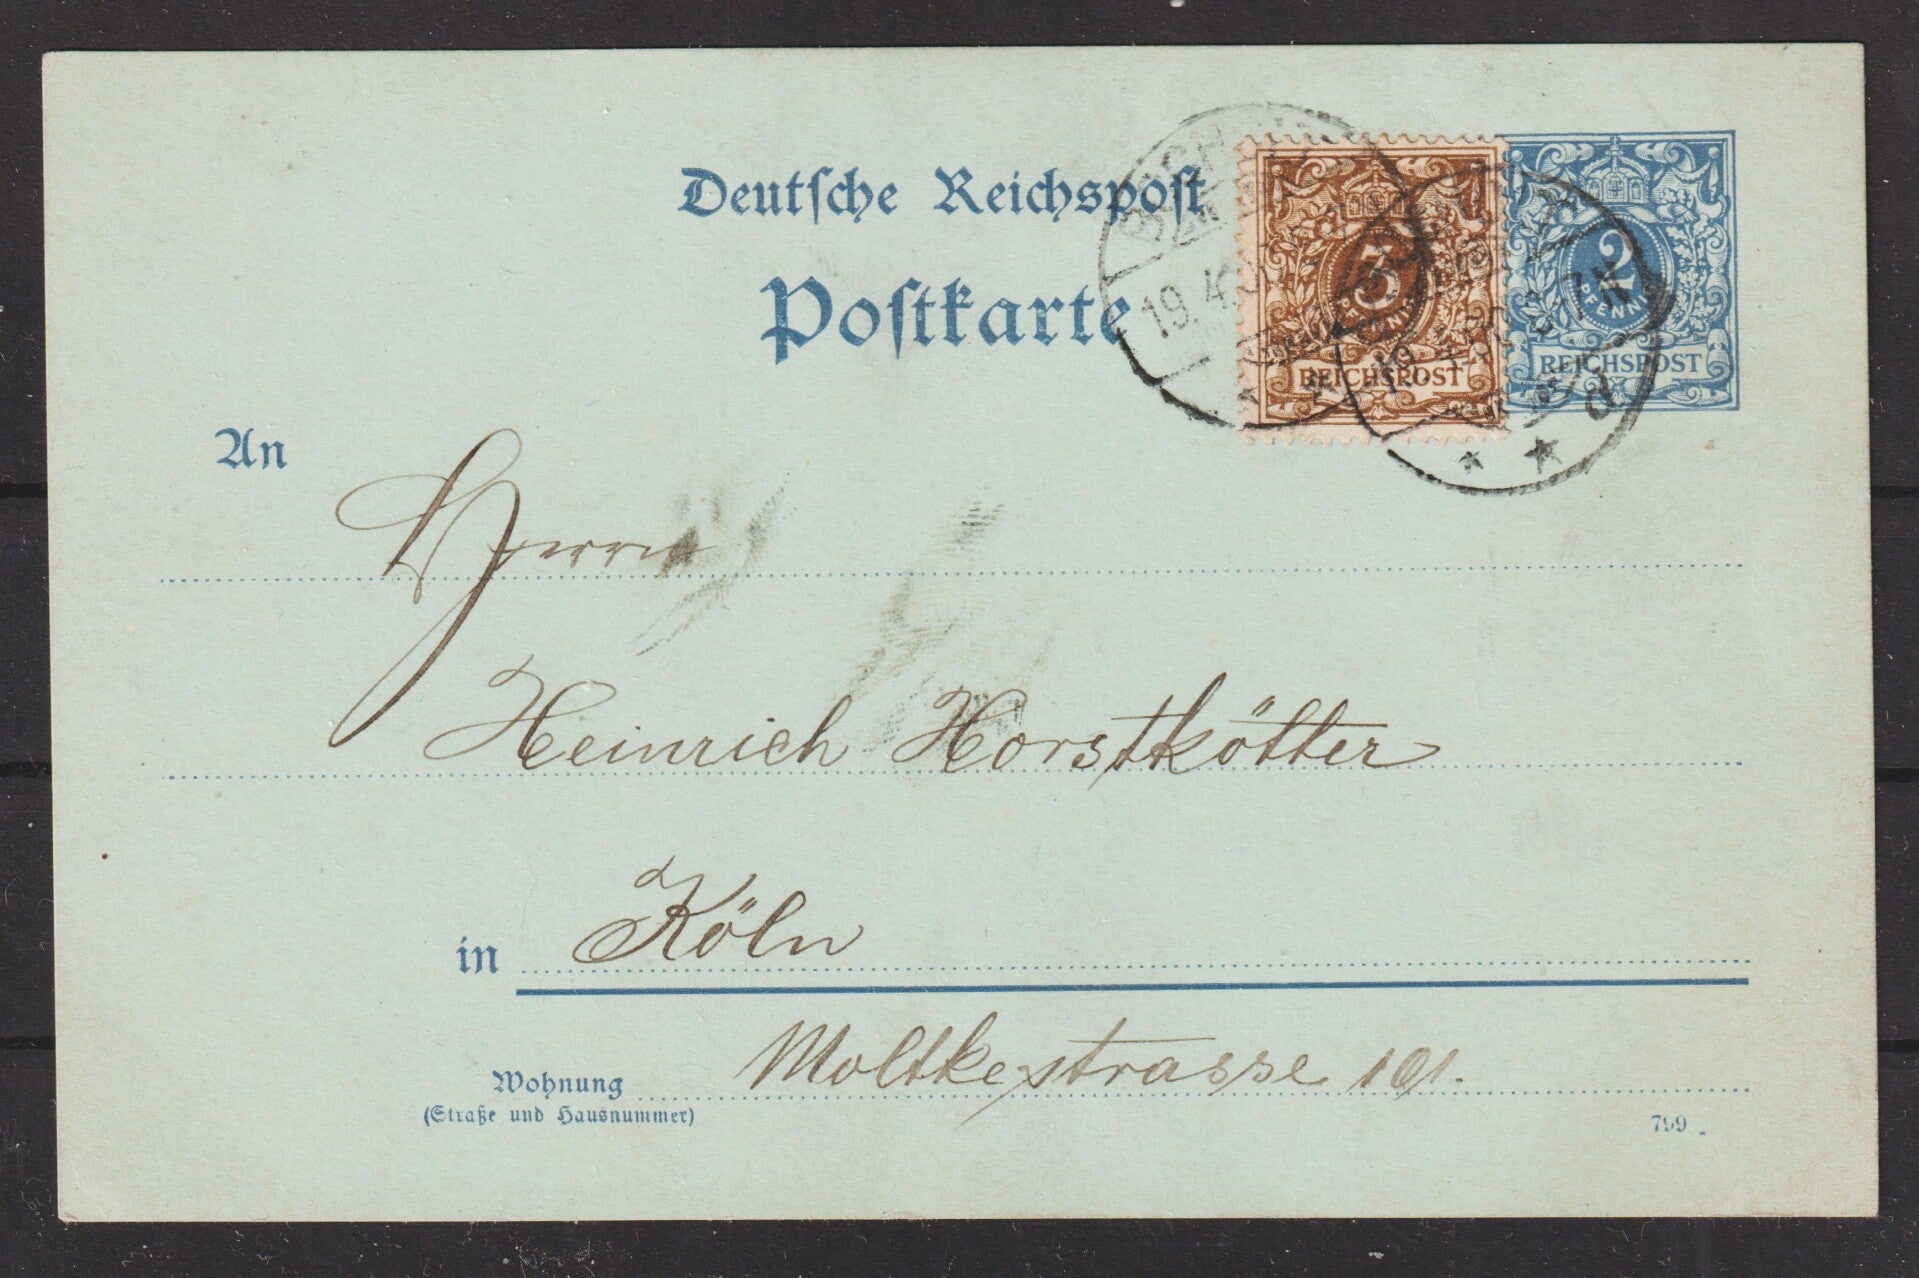 Deutsche Reichspost
Postkarte
3
PFENNIG
REICHSPOST
2
PFENNIG
REICHSPOST
19. 4
19
6-7N
d
An
Herrn
Heinrich Horstkötter
in Köln
Moltkestrasse 101.
Wohnung
(Straße und Hausnummer)
799